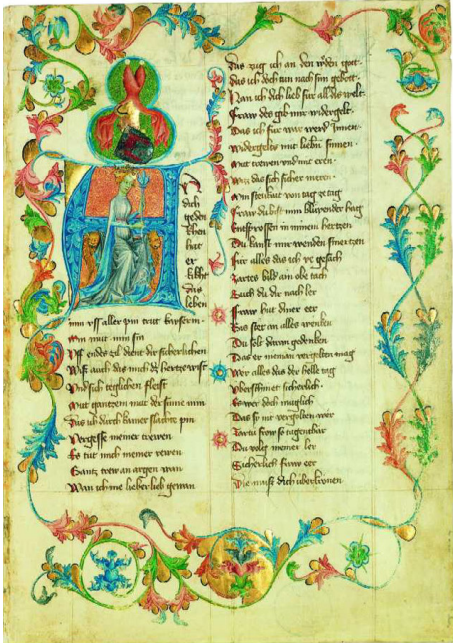 dich
geden
hat
er
leben
min vss aller pin trut kayserin
Min mut min sin
Vff endes zil dient dir sicherlichen
Wiss auch das mich din hertz
Vnd sich teglichen fleist
Mit gantzem mut der sinne min
Das ich durch kainer slachte pin
Vergesse meiner trewen
Es tut mich meiner rewen
Gantz trew an argen wan
Wan ich me lieber lieb gewan
Das zug ich an den got
das ich doch tun nach sim gebott
Wan ich dich lieb für all dis welt
Fraw des gib mir widergelt
Das ich für war werd Innen
Widergeltz mit liebin sinnen
Mit trewen vnd mit eren
Was das sich sicher meren
Min von tag ze tag
Fraw du bist min blüyender hag
Entsprossen in minem hertzen
Du kanst mir wenden smertzen
Für alles das ich ye gesach
Zartes bild ain obe tach
Auch du die nach ler
Fraw hut diner eer
Das ster an alles wenken
Du solt daran gedenken
Das er man vergelten mag
Wer alles das der helle tag
Vberschinet sicherlich
Es wer doch muglich
Das sy mit vergolten wer
Zartu frow so tugentbar
Du volg meiner ler
Sicherlich fraw eer
Die must dich überkrönen